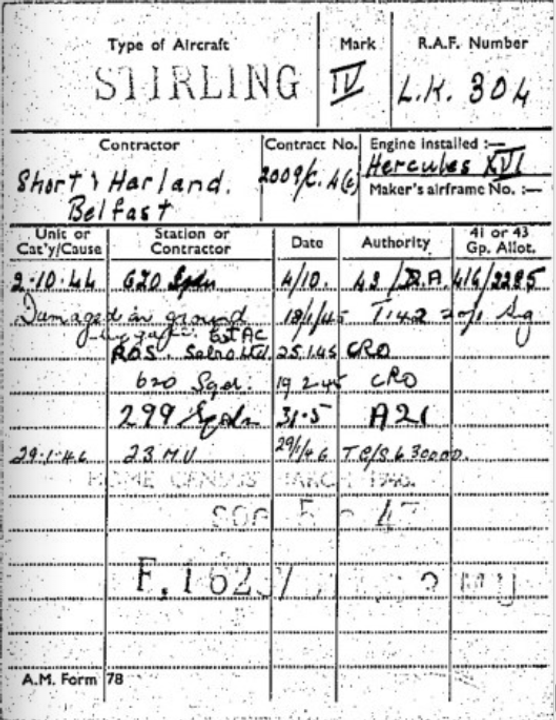 Type of Aircraft Mark R.A.F. Number
STIRLING IV L.K. 304
Contractor Contract No. Engine installed :—
Short & Harland. 2009/C.4(c) Hercules XVI
Belfast Maker's airframe No. :—
Unit or Cat'y/Cause Station or Contractor Date Authority 41 or 43 Gp. Allot.
2.10.44 620 Sqdn 4/10. 43/D.A. 416/2285
Damaged in ground 18/1/45
Cat AC
R.O.S. Sebro Ltd. 25.1.45 CRO
620 Sqd. 19.2.45 CRO
299 Sqdn 31.5 A21
29.1.46 23 MU 29/1/46
HOME CENSUS MARCH 1946.
5 47
F.
A.M. Form 78